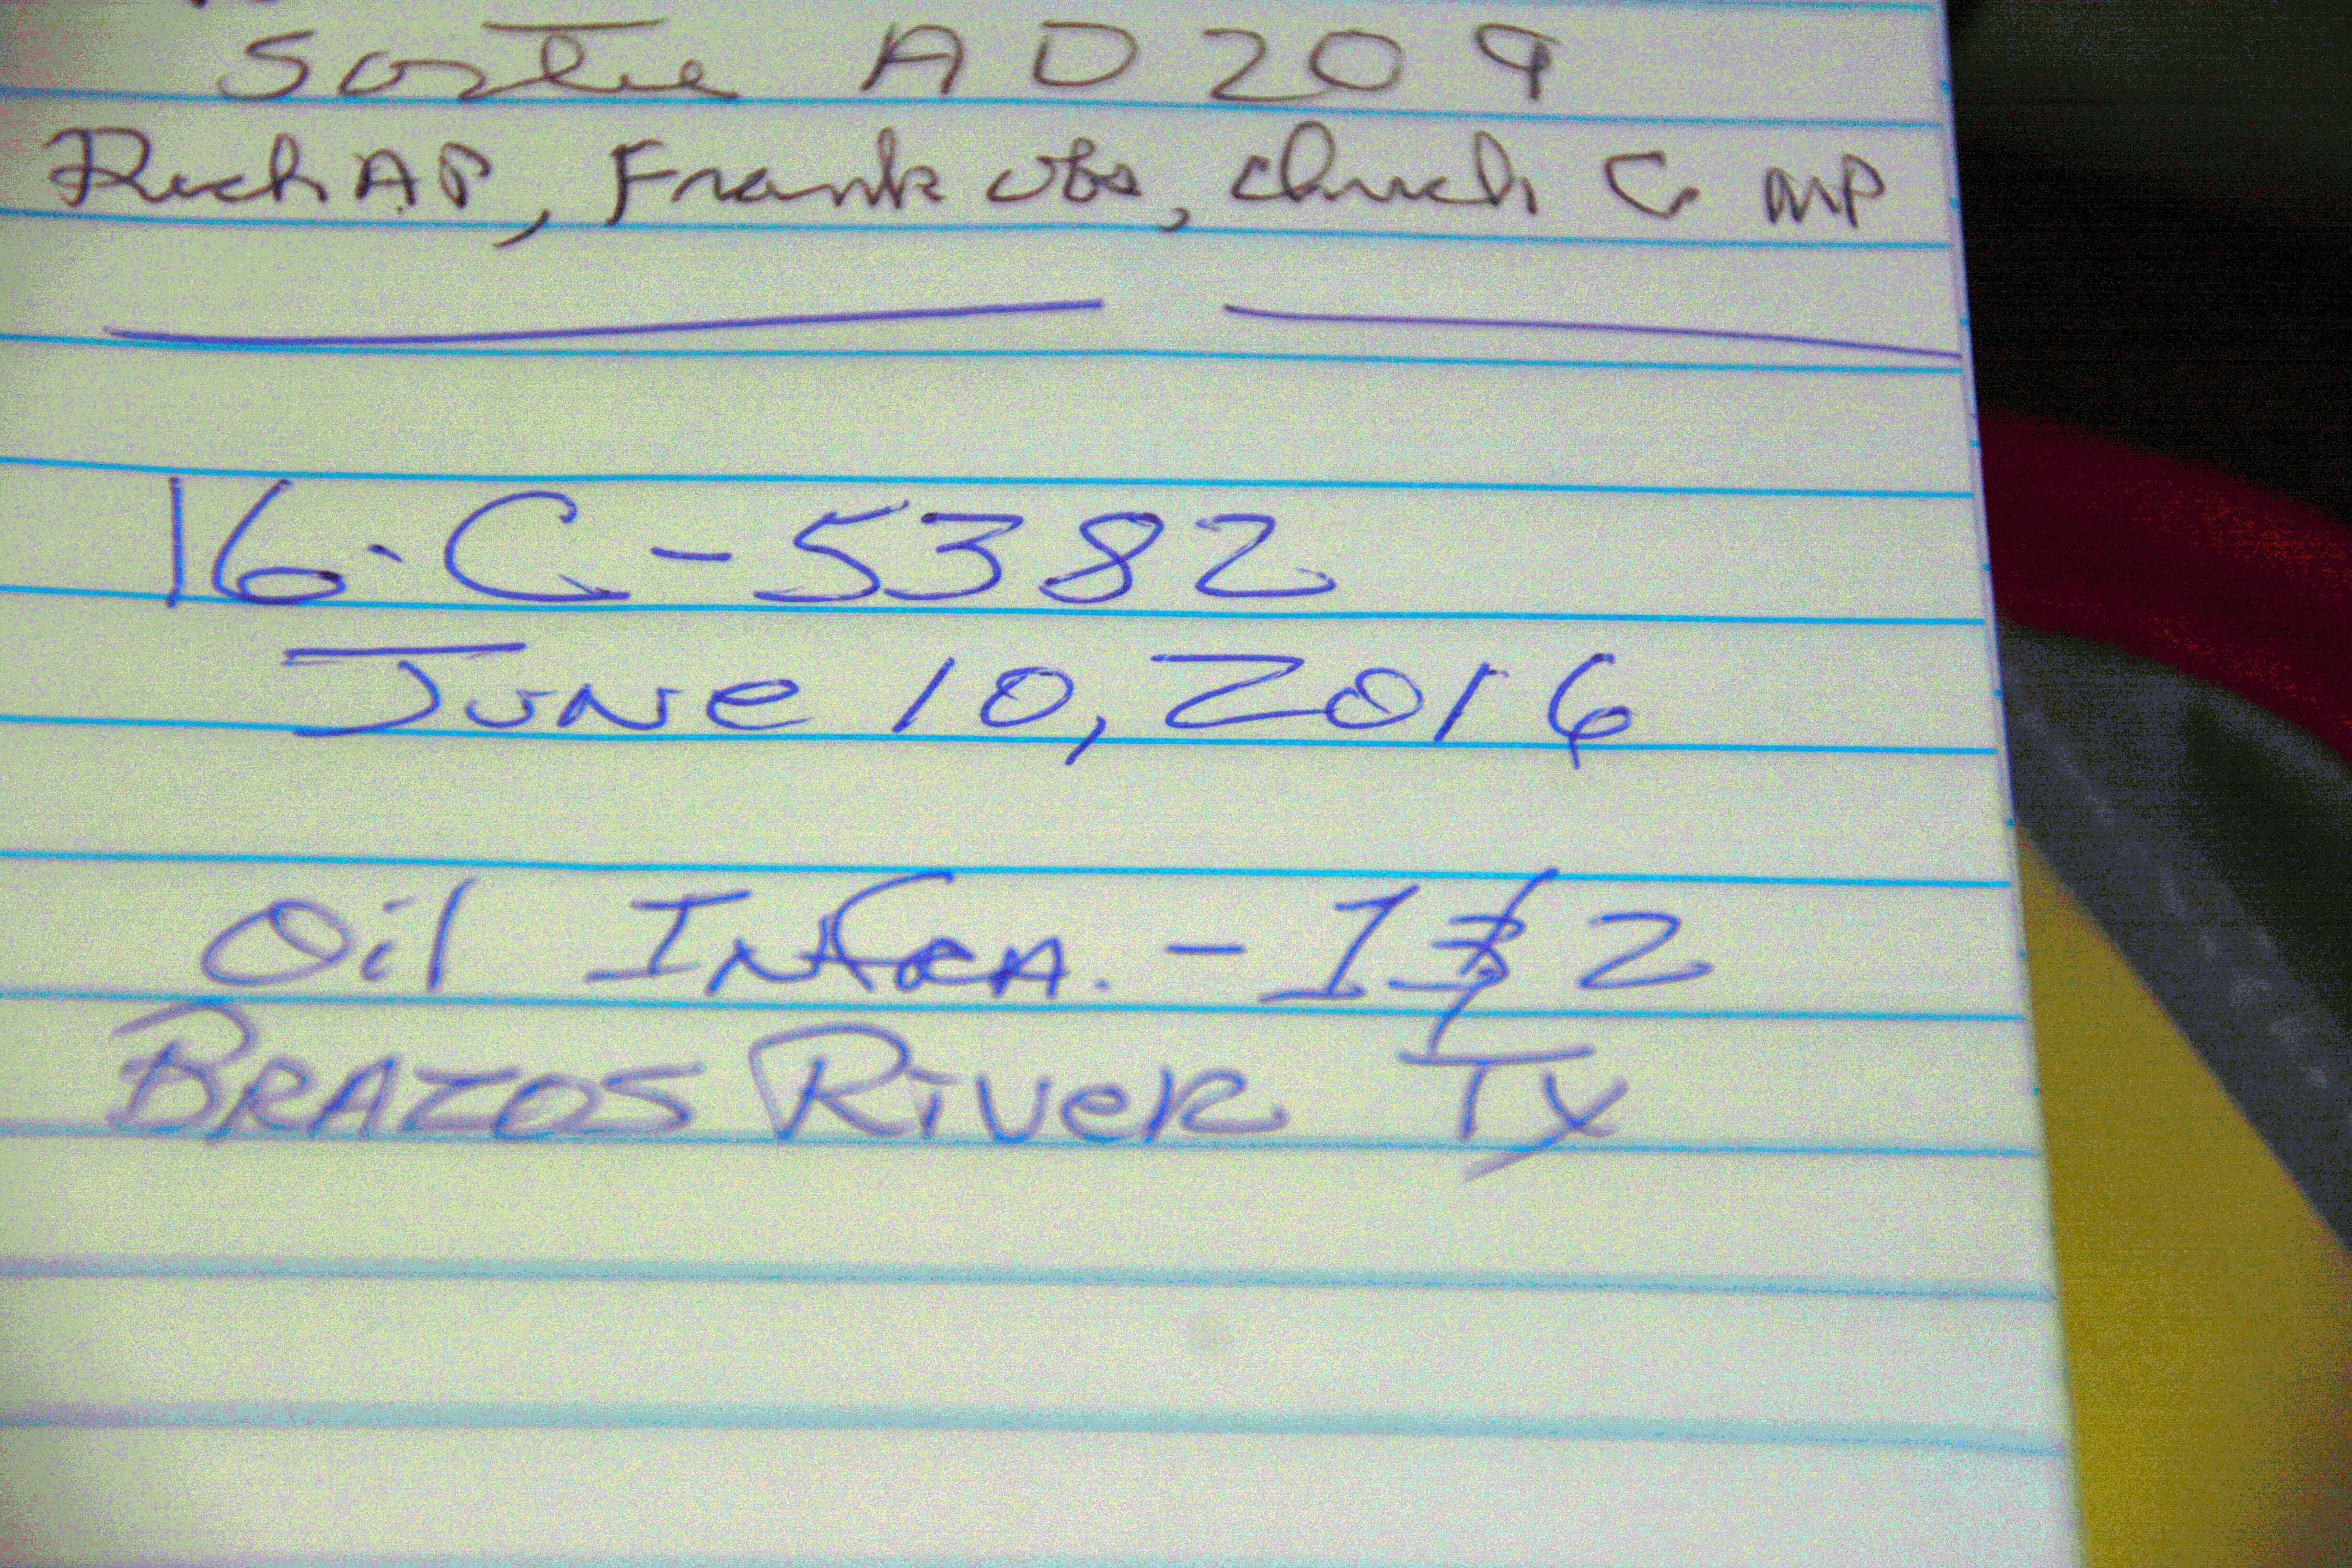 Sortie A D 20 9
Rich AP, Frank obs, Chuck G MP
16-C-5382
June 10, 2016
Oil Infra. - 1 & 2
Brazos River Tx